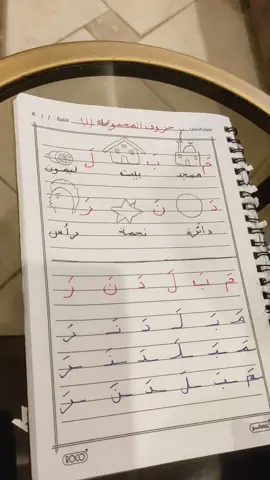 حروف المجموعة (1)
مَ بَ لَ
مسجد بيت ليمون
دَ نَ رَ
دائرة نجمة رأس
مَ بَ لَ دَ نَ رَ
مَـ بَـ لَـ دَ نَـ رَ
مَـ بَـ لَـ دَ نَـ رَ
مَـ بَـ لَـ دَ نَـ رَ
ROCO